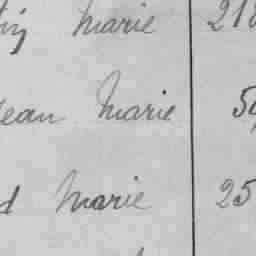 Marie 21
Jean Marie 5
d Marie 25